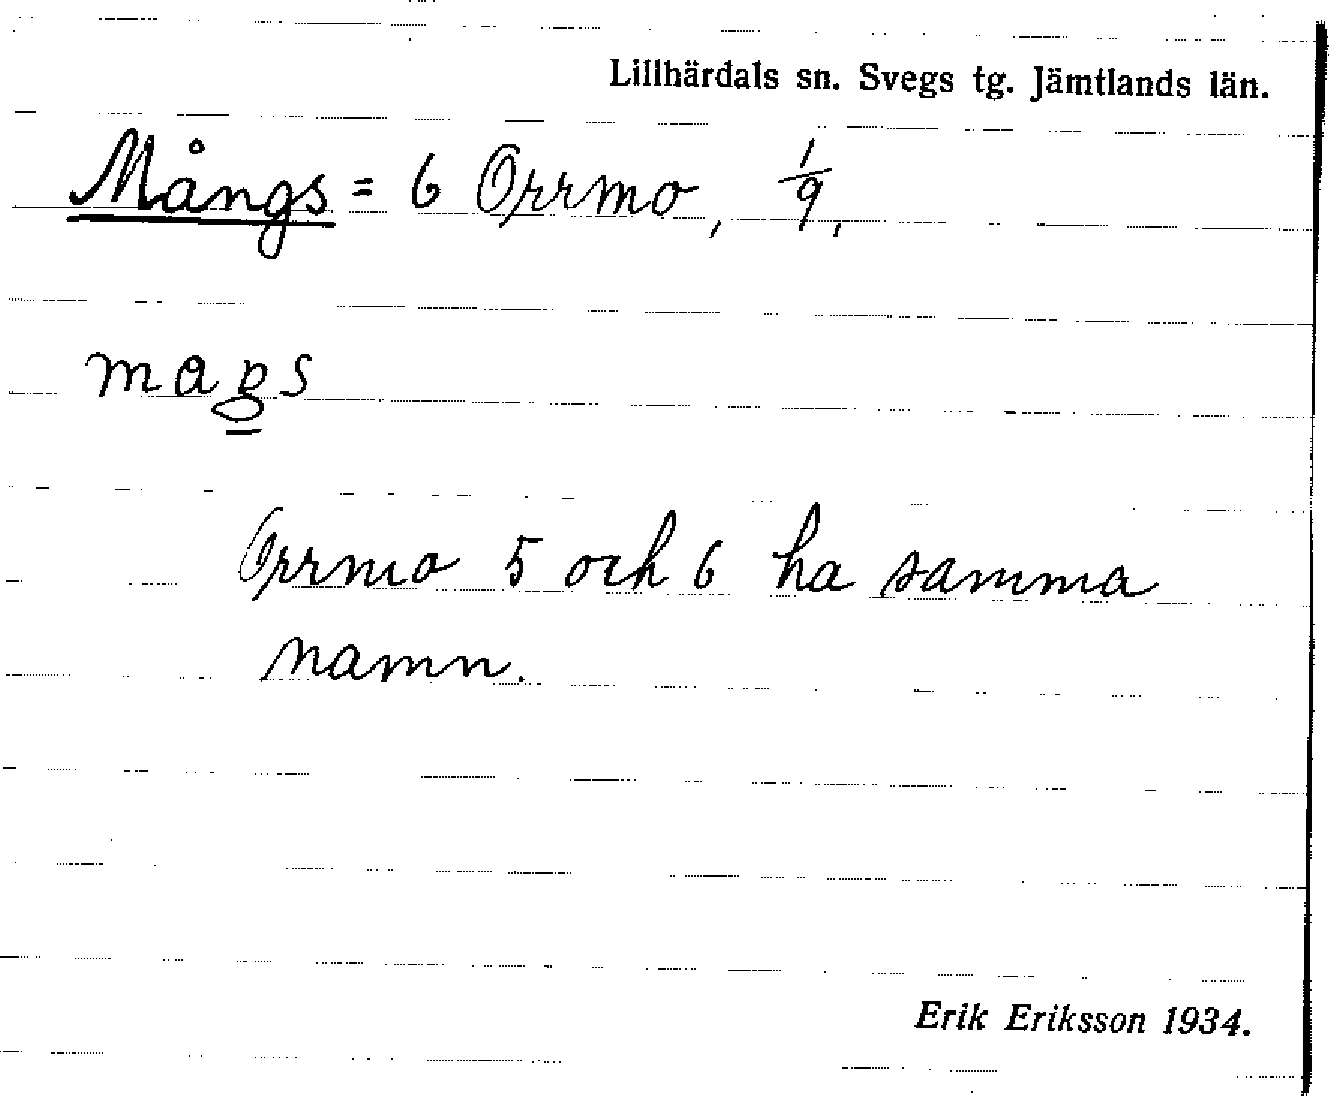 Lillhärdals sn. Svegs tg. Jämtlands län.
Mångs = 6 Orrmo, 1/9,
Orrmo 5 och 6 ha samma
namn.
Erik Eriksson 1934.